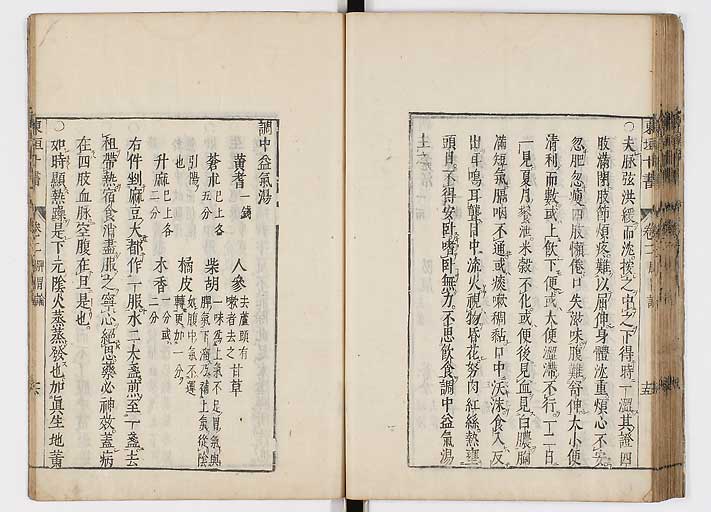 東垣十書
卷二
十五
○夫脉弦洪緩而沈按之中之下得時一澀其證四
肢滿閉肢節煩疼難以屈伸身體沈重煩心不安
忽肥忽瘦四肢懶倦口失滋味腹難舒伸大小便
清利而數或上飲下便或大便澀滯不行一二日
一見夏月飧泄米穀不化或便後見血見白膿胸
滿短氣膈咽不通或痰嗽稠黏口中沃沫食入反
出耳鳴耳聾目中流火視物昏花努肉紅絲熱壅
頭目不得安臥嗜臥無力不思飲食調中益氣湯
主之
調中益氣湯
黃耆一錢 人參去蘆頭有嗽者去之 甘草
蒼朮已上各五分 柴胡一味爲上氣不足胃氣與脾氣下溜乃補上氣從陰引陽也
橘皮如腹中氣不運轉更加一分
升麻已上各二分 木香一分或二分
右件剉麻豆大都作一服水二大盞煎至一盞去
柤帶熱宿食消盡服之寧心絕思藥必神效蓋病
在四肢血脉空腹在旦是也
○如時顯熱躁是下元陰火蒸蒸發也加眞生地黃
東垣十書
卷二 脾胃論